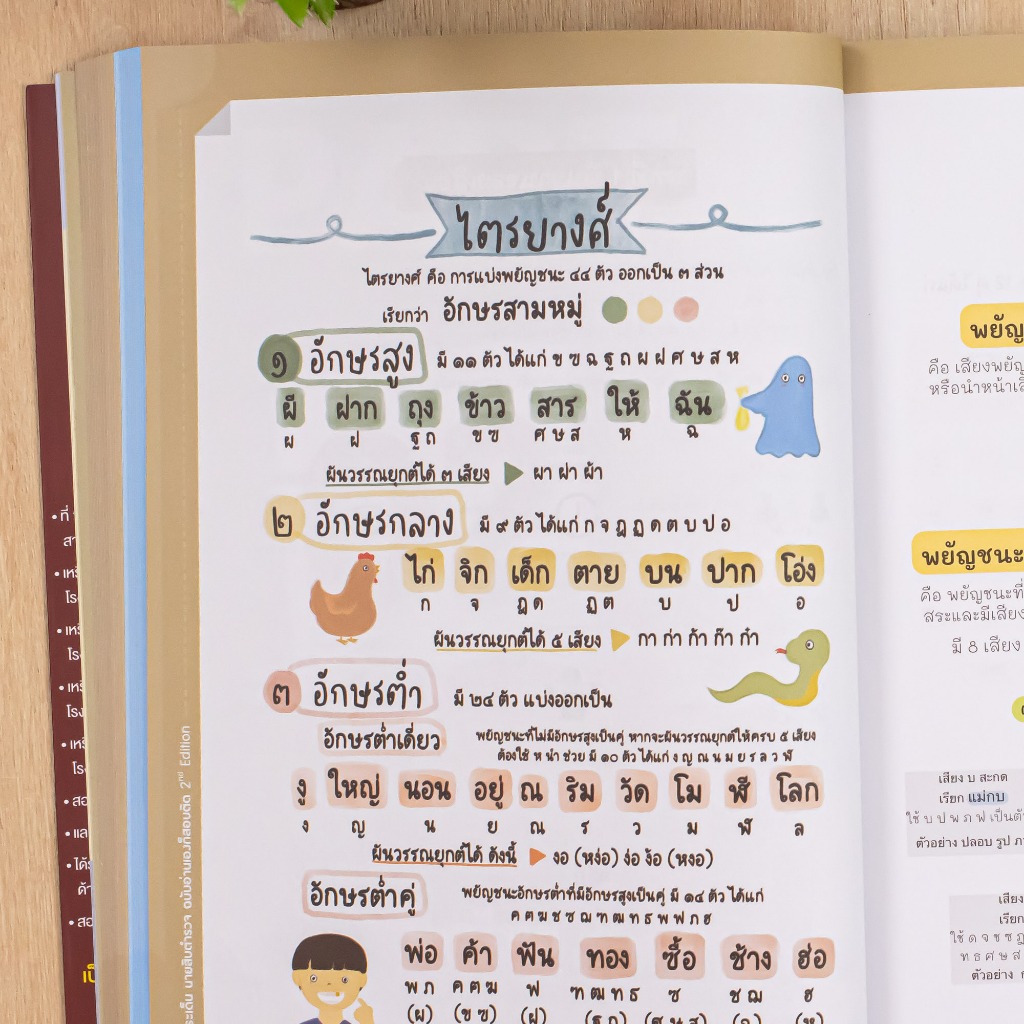 ไตรยางศ์
ไตรยางศ์ คือ การแบ่งพยัญชนะ ๔๔ ตัว ออกเป็น ๓ ส่วน
เรียกว่า อักษรสามหมู่
๑ อักษรสูง มี ๑๑ ตัว ได้แก่ ข ฃ ฉ ฐ ถ ผ ฝ ศ ษ ส ห
ผี ฝาก ถุง ข้าว สาร ให้ ฉัน
ผ ฝ ฐ ถ ข ฃ ศ ษ ส ห ฉ
ผันวรรณยุกต์ได้ ๓ เสียง ผา ฝา ผ้า
๒ อักษรกลาง มี ๙ ตัว ได้แก่ ก จ ฎ ฏ ด ต บ ป อ
ไก่ จิก เด็ก ตาย บน ปาก โอ่ง
ก จ ฎ ด ฏ ต บ ป อ
ผันวรรณยุกต์ได้ ๕ เสียง กา ก่า ก้า ก๊า ก๋า
๓ อักษรต่ำ มี ๒๔ ตัว แบ่งออกเป็น
อักษรต่ำเดี่ยว พยัญชนะที่ไม่มีอักษรสูงเป็นคู่ หากจะผันวรรณยุกต์ให้ครบ ๕ เสียง
ต้องใช้ ห นำ ช่วย มี ๑๐ ตัว ได้แก่ ง ญ ณ น ม ย ร ล ว ฬ
งู ใหญ่ นอน อยู่ ณ ริม วัด โม ฬี โลก
ง ญ น ย ณ ร ว ม ฬ ล
ผันวรรณยุกต์ได้ ดังนี้ งอ (หง่อ) ง่อ ง้อ (หงอ)
อักษรต่ำคู่ พยัญชนะอักษรต่ำที่มีอักษรสูงเป็นคู่ มี ๑๔ ตัว ได้แก่
ค ฅ ฆ ช ซ ฌ ฑ ฒ ท ธ พ ฟ ภ ฮ
พ่อ ค้า ฟัน ทอง ซื้อ ช้าง ฮ่อ
พ ภ ค ฅ ฆ ฟ ฑ ฒ ท ธ ซ ช ฌ ฮ
(ผ) (ข ฃ) (ฝ) (ฐ ถ) (ศ ษ ส) (ฉ) (ห)
นายสิบตำรวจ ฉบับอ่านเองก็สอบติด 2nd Edition
พยัญชนะ
คือ พยัญชนะที่
สระและมีเสียง
มี 8 เสียง
เสียง บ สะกด
เรียก แม่กบ
ใช้ บ ป พ ภ ฟ เป็นตัว
ตัวอย่าง ปลอบ รูป
เสียง
เรียก
ตัวอย่าง